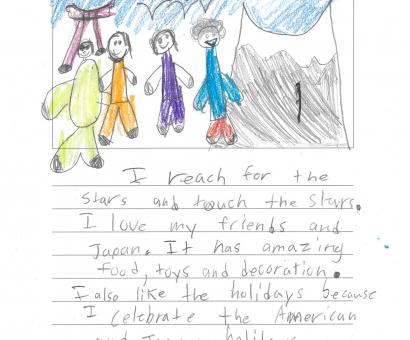 I reach for the
stars and touch the stars.
I love my friends and
Japan. It has amazing
food, toys and decoration.
I also like the holidays because
I celebrate the American
and